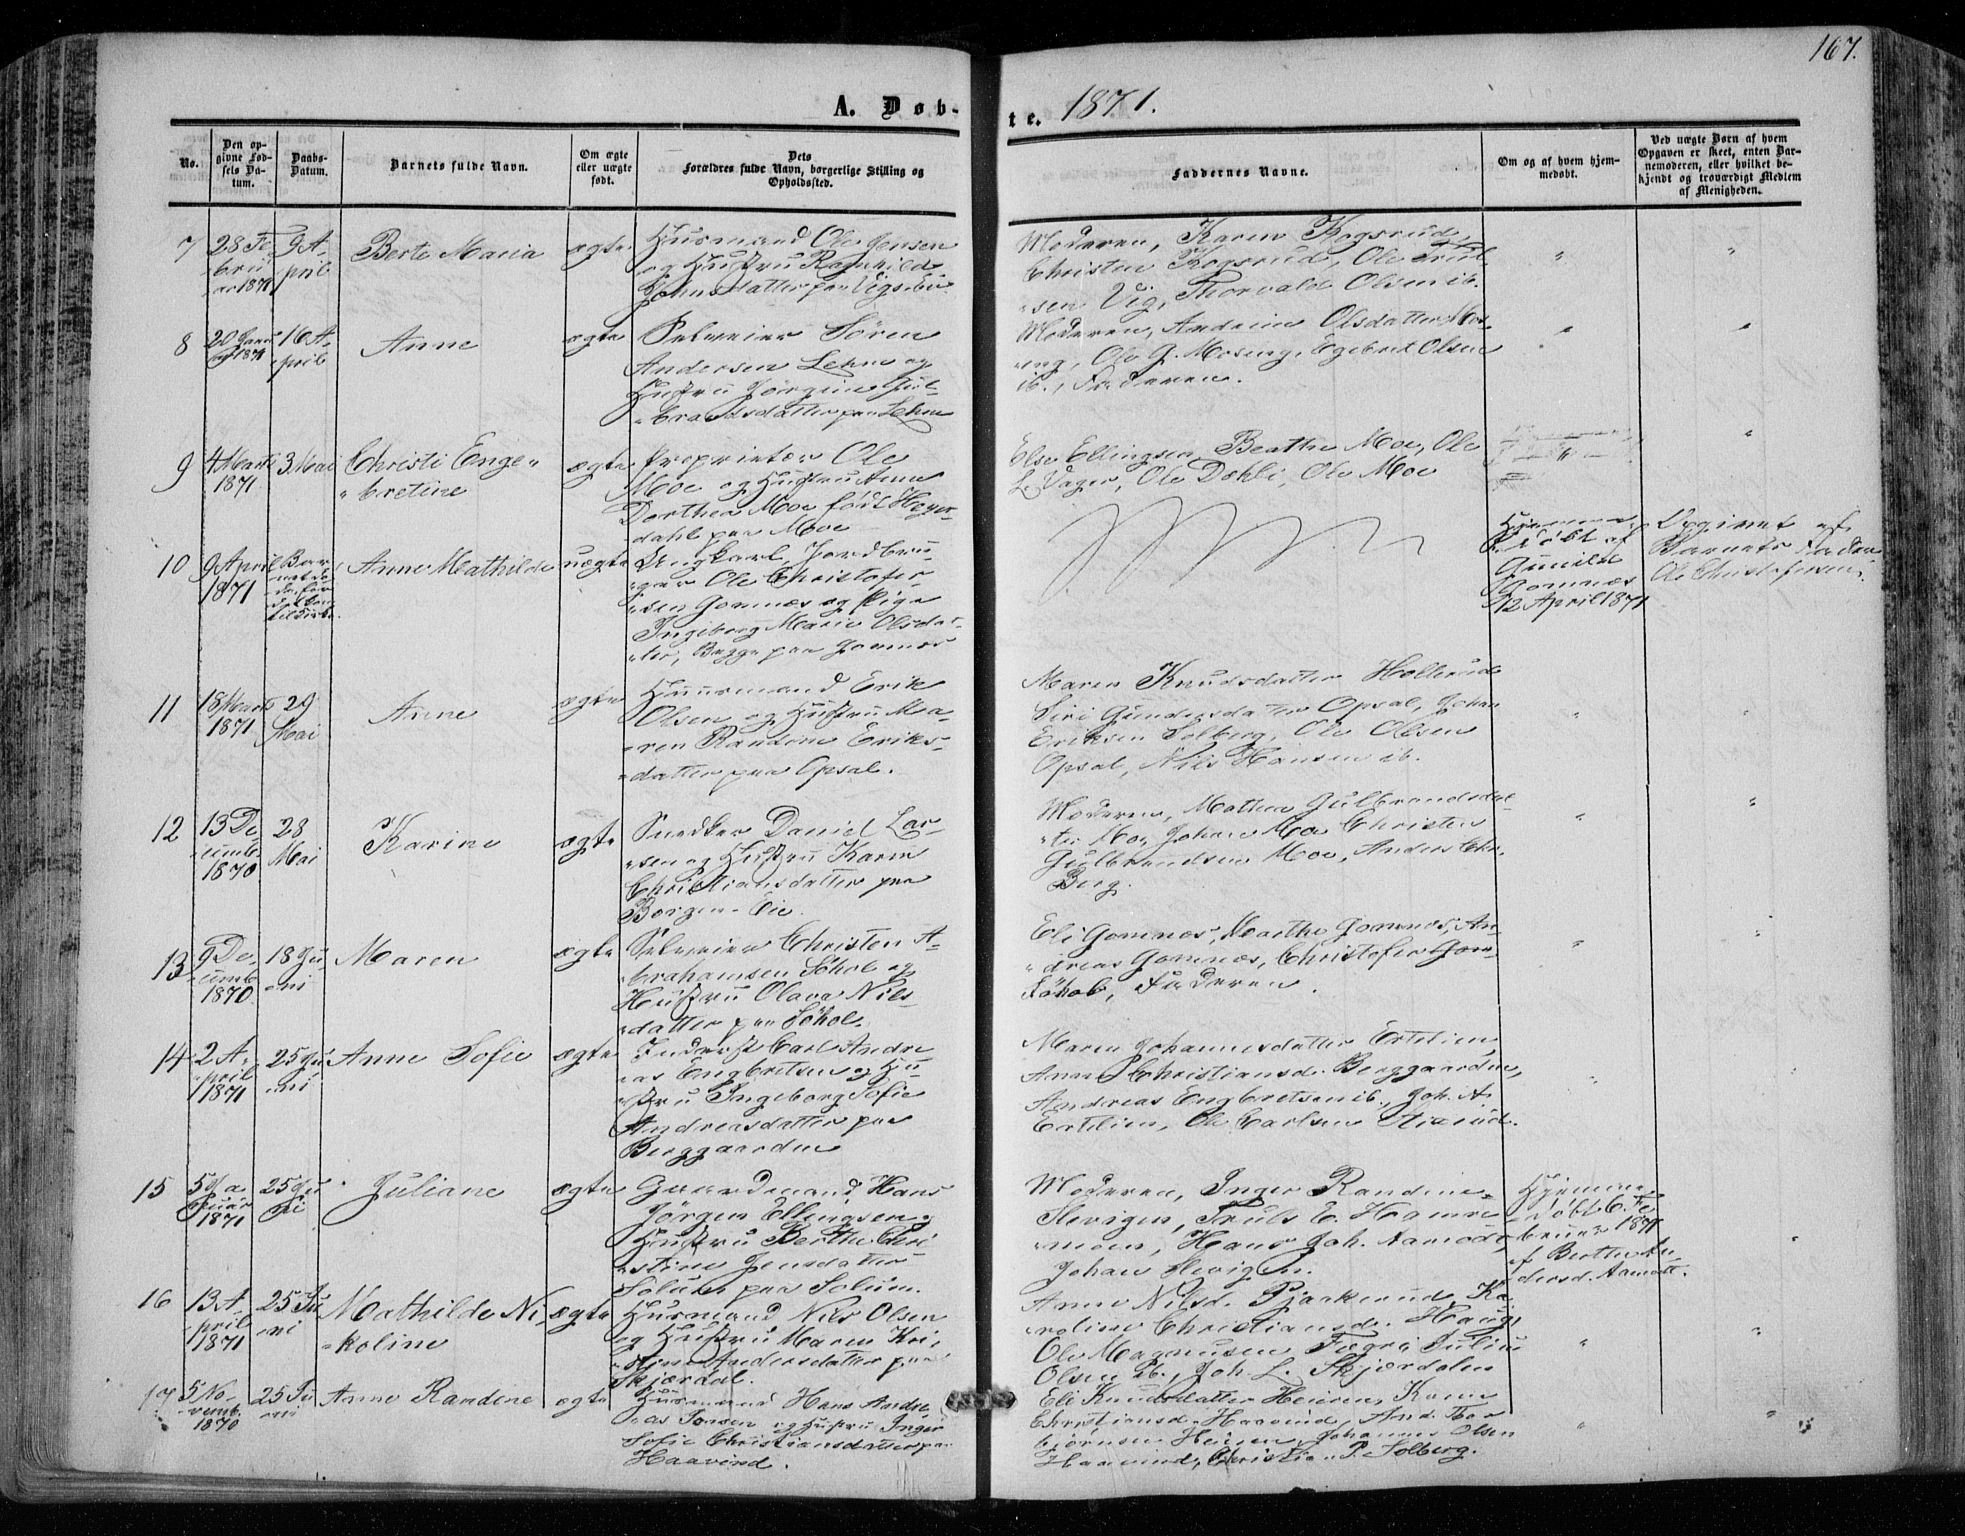 167.
A. Døb-
te. 1871.
No.
Den op-
givne Fød-
sels Da-
tum.
Daabs-
Datum.
Barnets fulde Navn.
Om ægte
eller uægte
født.
Dets
Forældres fulde Navn, borgerlige Stilling og
Opholdssted.
Faddernes Navne.
Om og af hvem hjem-
medøbt.
Ved uægte Børn af hvem
Opgaven er skeet, enten Bar-
nemoderen, eller hvilket be-
kjendt og troværdigt Medlem
af Menigheden.
7
28 Fe
bru
ar 1871
9 A-
pril
Berte Maria
ægte
Husmand Ole Jensen
og Hustru Ragnhild
Johnsdatter paa
Moderen, Karen Kogsrud,
Christen Kogsrud, Ole Trul-
sen Vig, Thorvald Olsen ib.
8
20 Janu
1871
16 A-
pril
Anne
ægte
Selveier Sören
Andersen Lehne og
Hustru Jörgine Gul-
brandsdatter paa Lehne
Moderen, Andrine Olsdatter Mos-
eng, Ole G. Moseng, Egebret Olsen
ib., Faderen.
9
4 Marts
1871
3 Mai
Christi Enge-
bretine
ægte
Proprietær Ole
Moe og Hustru Anne
Dorthea Moe födt Heyer-
dahl paa Moe
Else Ellingsen, Beathe Moe, Ole
L. Vager, Ole Dæhli, Ole Moe
10
9 April
1871
Bar
net
Anne Mathilde
uægte
Ungkarl, Jordbru-
ger Ole Christofer-
sen Gomnæs og Pige
Ingeborg Marie Olsdat-
ter, Begge paa Gomnæs
Hjemme-
döbt af
Gunild
Gomnæs
12 April 1871
Opgivet af
Barnets Fader
Ole Christofersen.
11
18 Marts
1871
29
Mai
Anne
ægte
Huusmand Erik
Olsen og Hustru Ma-
ren Randine Eriks-
datter paa Opsal.
Maren Knudsdatter Hollerud
Siri Gundersdatter Opsal, Johan
Eriksen Solberg, Ole Olsen
Opsal, Nils Hansen ib.
12
13 De-
cemb.
1870
28
Mai
Karine
ægte
Snedker Daniel Lar-
sen og Hustru Karen
Christiansdatter paa
Borgen-Eie.
Moderen, Mathea Gulbrandsdat-
ter Moe, Johan Moe Christen
Gulbrandsen Moe, Anders Chr.
Berg.
13
9 De-
cemb
1870
18 Ju-
ni
Maren
ægte
Selveier Christen A-
brahamsen Söhol og
Hustru Olava Nils-
datter paa Söhol.
Eli Gomnæs, Marthe Gomnæs, An-
dreas Gomnæs, Christofer Gom-
Faderen.
14
2 A-
pril
1871
25 Ju-
ni
Anne Sofie
ægte
Inderst Carl Andre-
as Engbretsen og Hu-
stru Ingeborg Sofie
Andreasdatter paa
Berggaarden
Maren Johannesdatter Ertelien,
Anne Christiansd. Berggaarden,
Andreas Engbretsen ib., Joh. A.
Ertelien, Ole Carlsen
15
5 Ja
nuar
1871
25 Ju
ni
Juliane
ægte
Gaardmand Hans
Jörgen Ellingsen og
Hustru Berthe Chri
stine Jensdatter
Solum paa Solum.
Moderen, Inger Randine
Truls E. Hamre-
moen, Hans Joh. Aamodt,
Johan
Hjemme-
döbt 6. Fe
bruar 1871
af Berthe An-
dersd. Aamodt.
16
13 A-
pril
1871
25 Ju
ni
Mathilde Ni-
koline
ægte
Husmand Nils Olsen
og Hustru Maren Kri-
stine Andersdatter paa
Skjærdal.
Anne Nilsd. Ka-
roline Christiansd. Haug,
Ole Magnusen Fægri, Julius
Olsen ib., Joh. L. Skjærdalen
17
5 No-
vemb.
1870
25 Ju
ni
Anne Randine
ægte
Husmand Hans Andre
as Jonsen og Hustru Inger
Sofie Christiansdatter paa
Haavind.
Eli Knudsdatter Heieren, Karen
Christiansd. Haavind, And. Tor
björnsen Heieren, Johannes Olsen
Haavind, Christian P. Solberg.